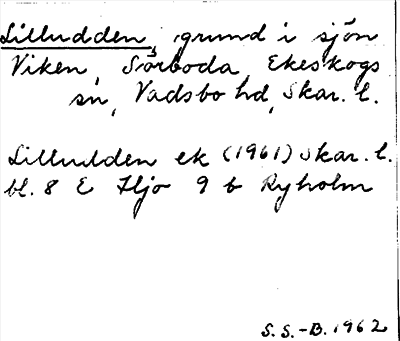 Lilludden, grund i sjön
Viken, Sörboda, Ekeskogs
sn, Vadsbo hd, Skar. l.
Lilludden ek (1961) Skar. l.
bl. 8 E Hjo 9 b Ryholm
S. S.-B. 1962